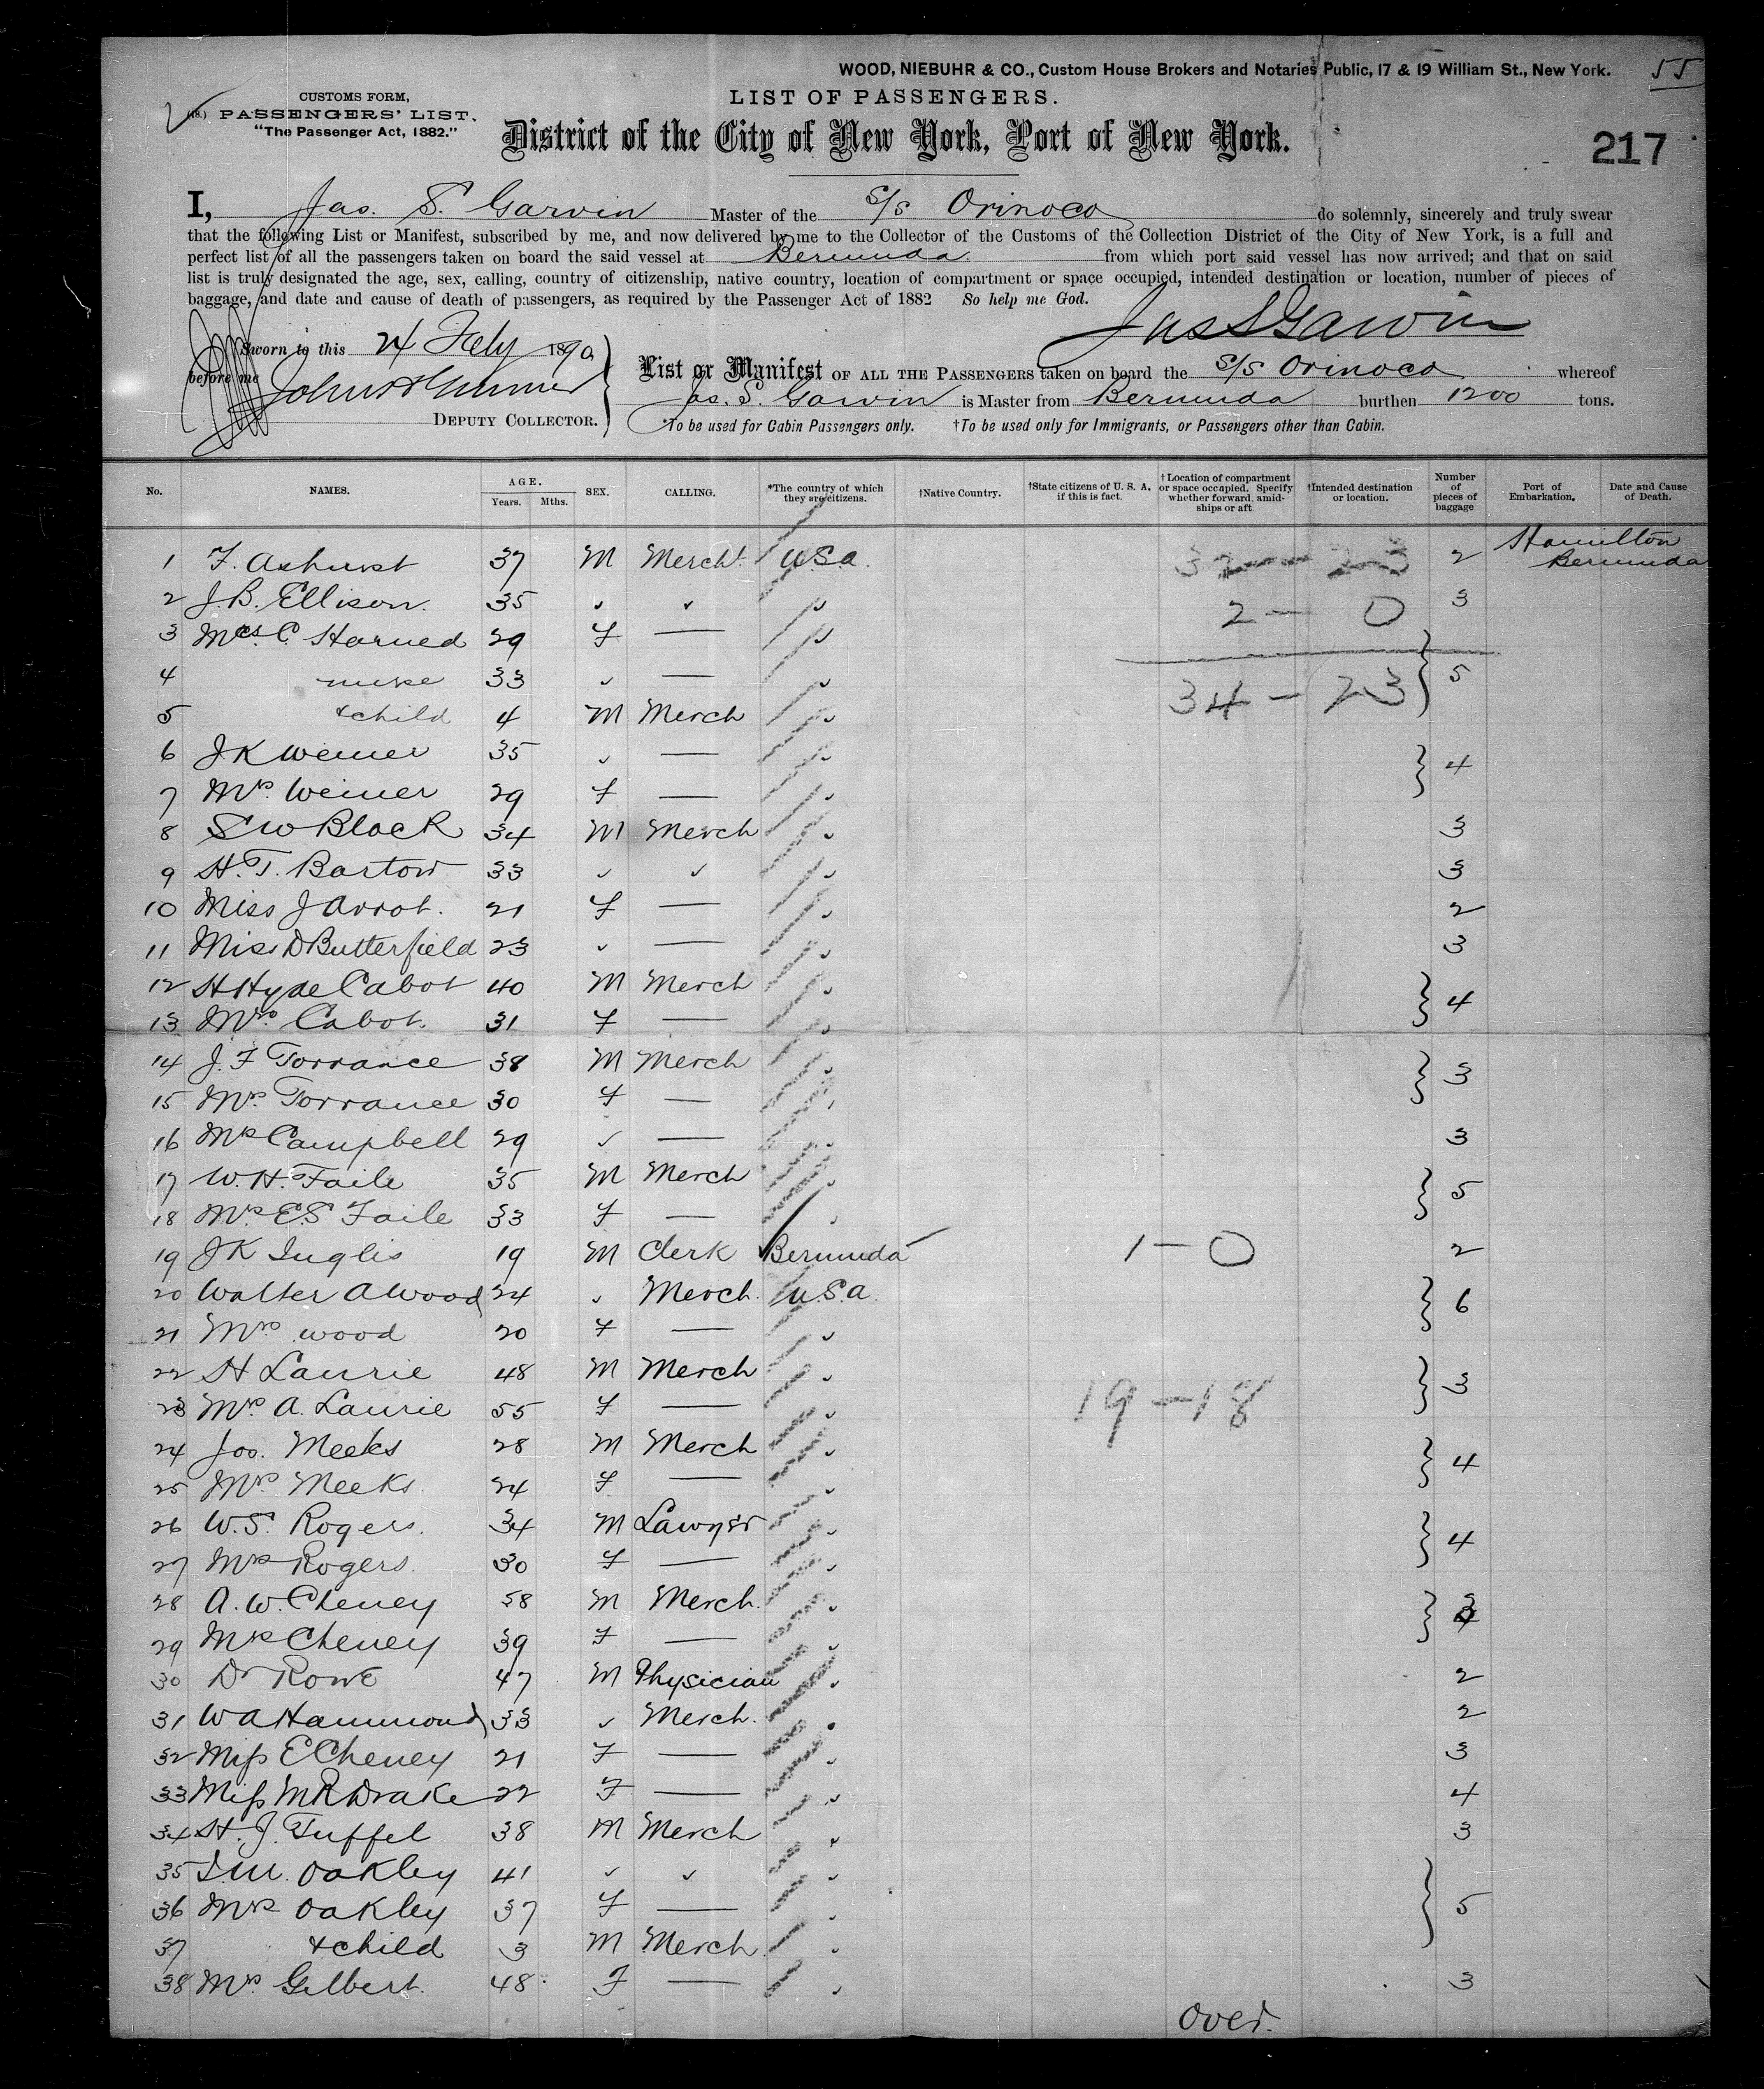 WOOD, NIEBUHR & CO., Custom House Brokers and Notaries Public, 17 & 19 William St., New York. 55
CUSTOMS FORM,
PASSENGERS' LIST.
"The Passenger Act, 1882."
LIST OF PASSENGERS.
District of the City of New York, Port of New York.
217
I, Jas. S. Garvin Master of the S/S Orinoco do solemnly, sincerely and truly swear
that the following List or Manifest, subscribed by me, and now delivered by me to the Collector of the Customs of the Collection District of the City of New York, is a full and
perfect list of all the passengers taken on board the said vessel at Bermuda from which port said vessel has now arrived; and that on said
list is truly designated the age, sex, calling, country of citizenship, native country, location of compartment or space occupied, intended destination or location, number of pieces of
baggage, and date and cause of death of passengers, as required by the Passenger Act of 1882 So help me God.
Jas S Garvin
Sworn to this 24 Feby 1890
before me
DEPUTY COLLECTOR.
List or Manifest OF ALL THE PASSENGERS taken on board the S/S Orinoco whereof
Jas. S. Garvin is Master from Bermuda burthen 1200 tons.
*To be used for Cabin Passengers only. †To be used only for Immigrants, or Passengers other than Cabin.
No. NAMES. AGE. Years. Mths. SEX. CALLING. *The country of which they are citizens. †Native Country. †State citizens of U. S. A. if this is fact. †Location of compartment or space occupied. Specify whether forward, amidships or aft. †Intended destination or location. Number of pieces of baggage Port of Embarkation. Date and Cause of Death.
1 F. Ashurst 37 M Mercht. U.S.a. 32 — 23 2 Hamilton Bermuda
2 J.B. Ellison. 35 ✓ ✓ ✓ 2 — 0 3
3 Mrs. C. Harned 29 F — ✓
4 nurse 33 ✓ — ✓ 34 — 23 } 5
5 & child 4 M Merch ✓
6 J K Weiner 35 ✓ — ✓
7 Mrs. Weiner 29 F — ✓ } 4
8 S W Black 34 M Merch ✓ 3
9 H. T. Bartow 33 ✓ ✓ ✓ 3
10 Miss J Arrot. 21 F — ✓ 2
11 Miss D Butterfield 23 ✓ — ✓ 3
12 H Hyde Cabot 40 M Merch ✓
13 Mrs Cabot. 31 F — ✓ } 4
14 J. F Torrance 38 M Merch ✓
15 Mrs. Torrance 30 F — ✓ } 3
16 Mrs Campbell 29 ✓ — ✓ 3
17 W. H. Faile 35 M Merch ✓
18 Mrs E.S Faile 33 F — ✓ } 5
19 J K Inglis 19 M Clerk Bermuda 1 — 0 2
20 Walter A Wood 24 ✓ Merch. U.S.a.
21 Mrs wood 20 F — ✓ } 6
22 H Laurie 48 M Merch ✓
23 Mrs. A. Laurie 55 F — ✓ 19 — 18 } 3
24 Jos. Meeks 28 M Merch ✓
25 Mrs Meeks. 24 F — ✓ } 4
26 W. S. Rogers. 34 M Lawyer ✓
27 Mrs Rogers. 30 F — ✓ } 4
28 A. W. Cheney 58 M Merch. ✓
29 Mrs Cheney 39 F — ✓ } 3
30 Dr Rowe 47 M Physician ✓ 2
31 W A Hammond 33 ✓ Merch. ✓ 2
32 Miss E Cheney 21 F — ✓ 3
33 Miss M R Drake 22 F — ✓ 4
34 H. J. Tuffel 38 M Merch ✓ 3
35 I. M. Oakley 41 ✓ ✓ ✓
36 Mrs Oakley 37 F — ✓ } 5
37 & child 3 M Merch. ✓
38 Mrs. Gilbert. 48 F — ✓ 3
Over.